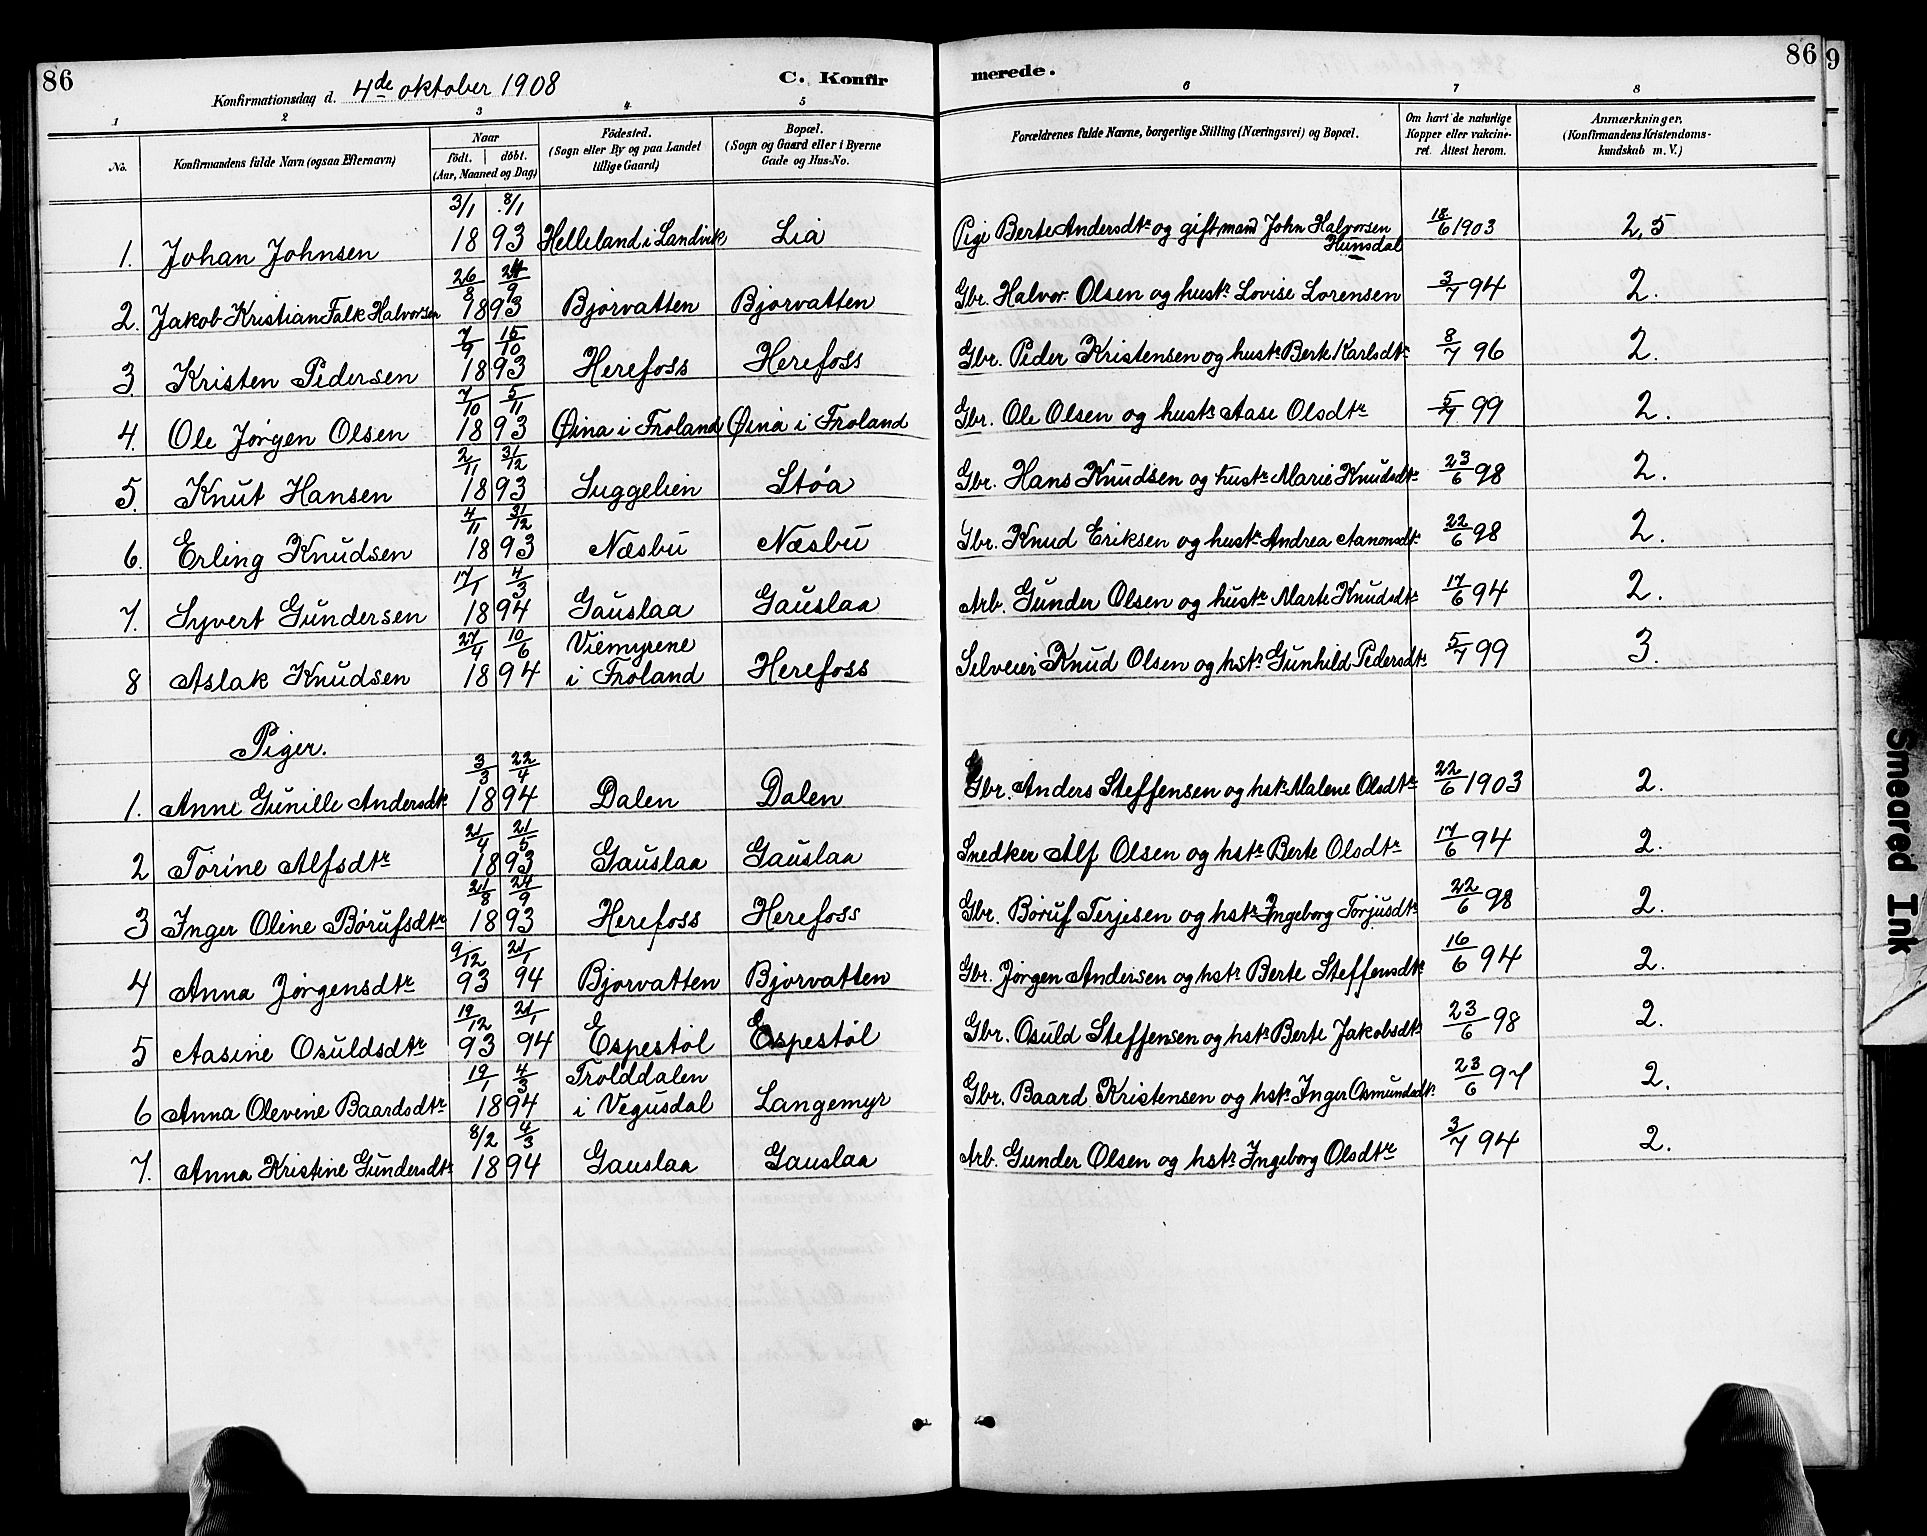 86
Konfirmationsdag d. 4de oktober 1908
C. Konfirmerede.
86
9
1 2 3 4 5 6 7 8
No.
Konfirmandens fulde Navn (ogsaa Efternavn)
Naar
födt. | döbt.
(Aar, Maaned og Dag)
Födested.
(Sogn eller By og paa Landet
tillige Gaard)
Bopæl.
(Sogn og Gaard eller i Byerne
Gade og Hus-No.
Forældrenes fulde Navne, borgerlige Stilling (Næringsvei) og Bopæl.
Om havt de naturlige
Kopper eller vakcine-
ret. Attest herom.
Anmærkninger.
(Konfirmandens Kristendoms-
kundskab m. V.)
1. Johan Johnsen 3/1 8/1 1893 Helleland i Landvik Lia Pige Berte Andersdtr og gift mand John Halvorsen Hunsdal 18/6 1903 2,5
2. Jakob Kristian Falk Halvorsen 26/8 24/9 1893 Bjorvatten Bjorvatten Gbr. Halvor Olsen og hustr Lovise Lorensen 3/7 94 2.
3. Kristen Pedersen 7/9 15/10 1893 Herefoss Herefoss Gbr. Peder Kristensen og hustr Berte Karlsdtr 8/7 96 2.
4. Ole Jørgen Olsen 7/10 5/11 1893 Øina i Froland Øina i Froland Gbr. Ole Olsen og hustr Aase Olsdtr 5/7 99 2.
5. Knut Hansen 2/11 31/12 1893 Suggelien Støa Gbr. Hans Knudsen og hustr Marie Knudsdtr 23/6 98 2.
6. Erling Knudsen 4/11 31/12 1893 Næsbu Næsbu Gbr. Knud Eriksen og hustr Andrea Aanonsdtr 22/6 98 2.
7. Syvert Gundersen 17/1 4/3 1894 Gauslaa Gauslaa Arb. Gunder Olsen og hustr Marte Knudsdtr 17/6 94 2.
8 Aslak Knudsen 27/4 10/6 1894 Viemyrene i Froland Herefoss Selveier Knud Olsen og hstr Gunhild Pedersdtr 5/7 99 3.
Piger.
1. Anne Gunille Andersdtr 3/3 22/4 1894 Dalen Dalen Gbr. Anders Steffensen og hstr Malene Olsdtr 22/6 1903 2.
2 Torine Alfsdtr 21/4 21/5 1893 Gauslaa Gauslaa Snedker Alf Olsen og hstr Berte Olsdtr 17/6 94 2.
3 Inger Oline Børufsdtr 21/8 24/9 1893 Herefoss Herefoss Gbr. Børuf Terjesen og hstr Ingeborg Torjusdtr 22/6 98 2.
4 Anna Jørgensdtr 9/12 93 21/1 94 Bjorvatten Bjorvatten Gbr. Jørgen Andersen og hstr Berte Steffensdtr 16/6 94 2.
5 Aasine Osuldsdtr 19/12 93 21/1 94 Espestøl Espestøl Gbr. Osuld Steffensen og hstr Berte Jakobsdtr 23/6 98 2.
6 Anna Olevine Baardsdtr 19/1 4/3 1894 Trolddalen i Vegusdal Langemyr Gbr. Baard Kristensen og hstr Inger Osmundsdtr 23/6 97 2.
7. Anna Kristine Gundersdtr 8/2 4/3 1894 Gauslaa Gauslaa Arb. Gunder Olsen og hstr Ingeborg Olsdtr 3/7 94 2.
Smeared Ink